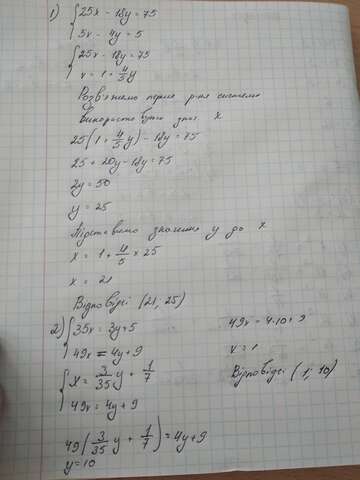 1) { 25x - 18y = 75
5x - 4y = 5
{ 25x - 18y = 75
x = 1 + 4/5 y
Розв'яжемо перше р-ня системи
Використовуючи знач x
25(1 + 4/5 y) - 18y = 75
25 + 20y - 18y = 75
2y = 50
y = 25
Підставимо значення y до x
x = 1 + 4/5 × 25
x = 21
Відповідь (21, 25)
2) { 35x = 3y + 5
49x = 4y + 9
{ x = 3/35 y + 1/7
49x = 4y + 9
49(3/35 y + 1/7) = 4y + 9
y = 10
49x = 4·10 + 9
x = 1
Відповідь (1; 10)